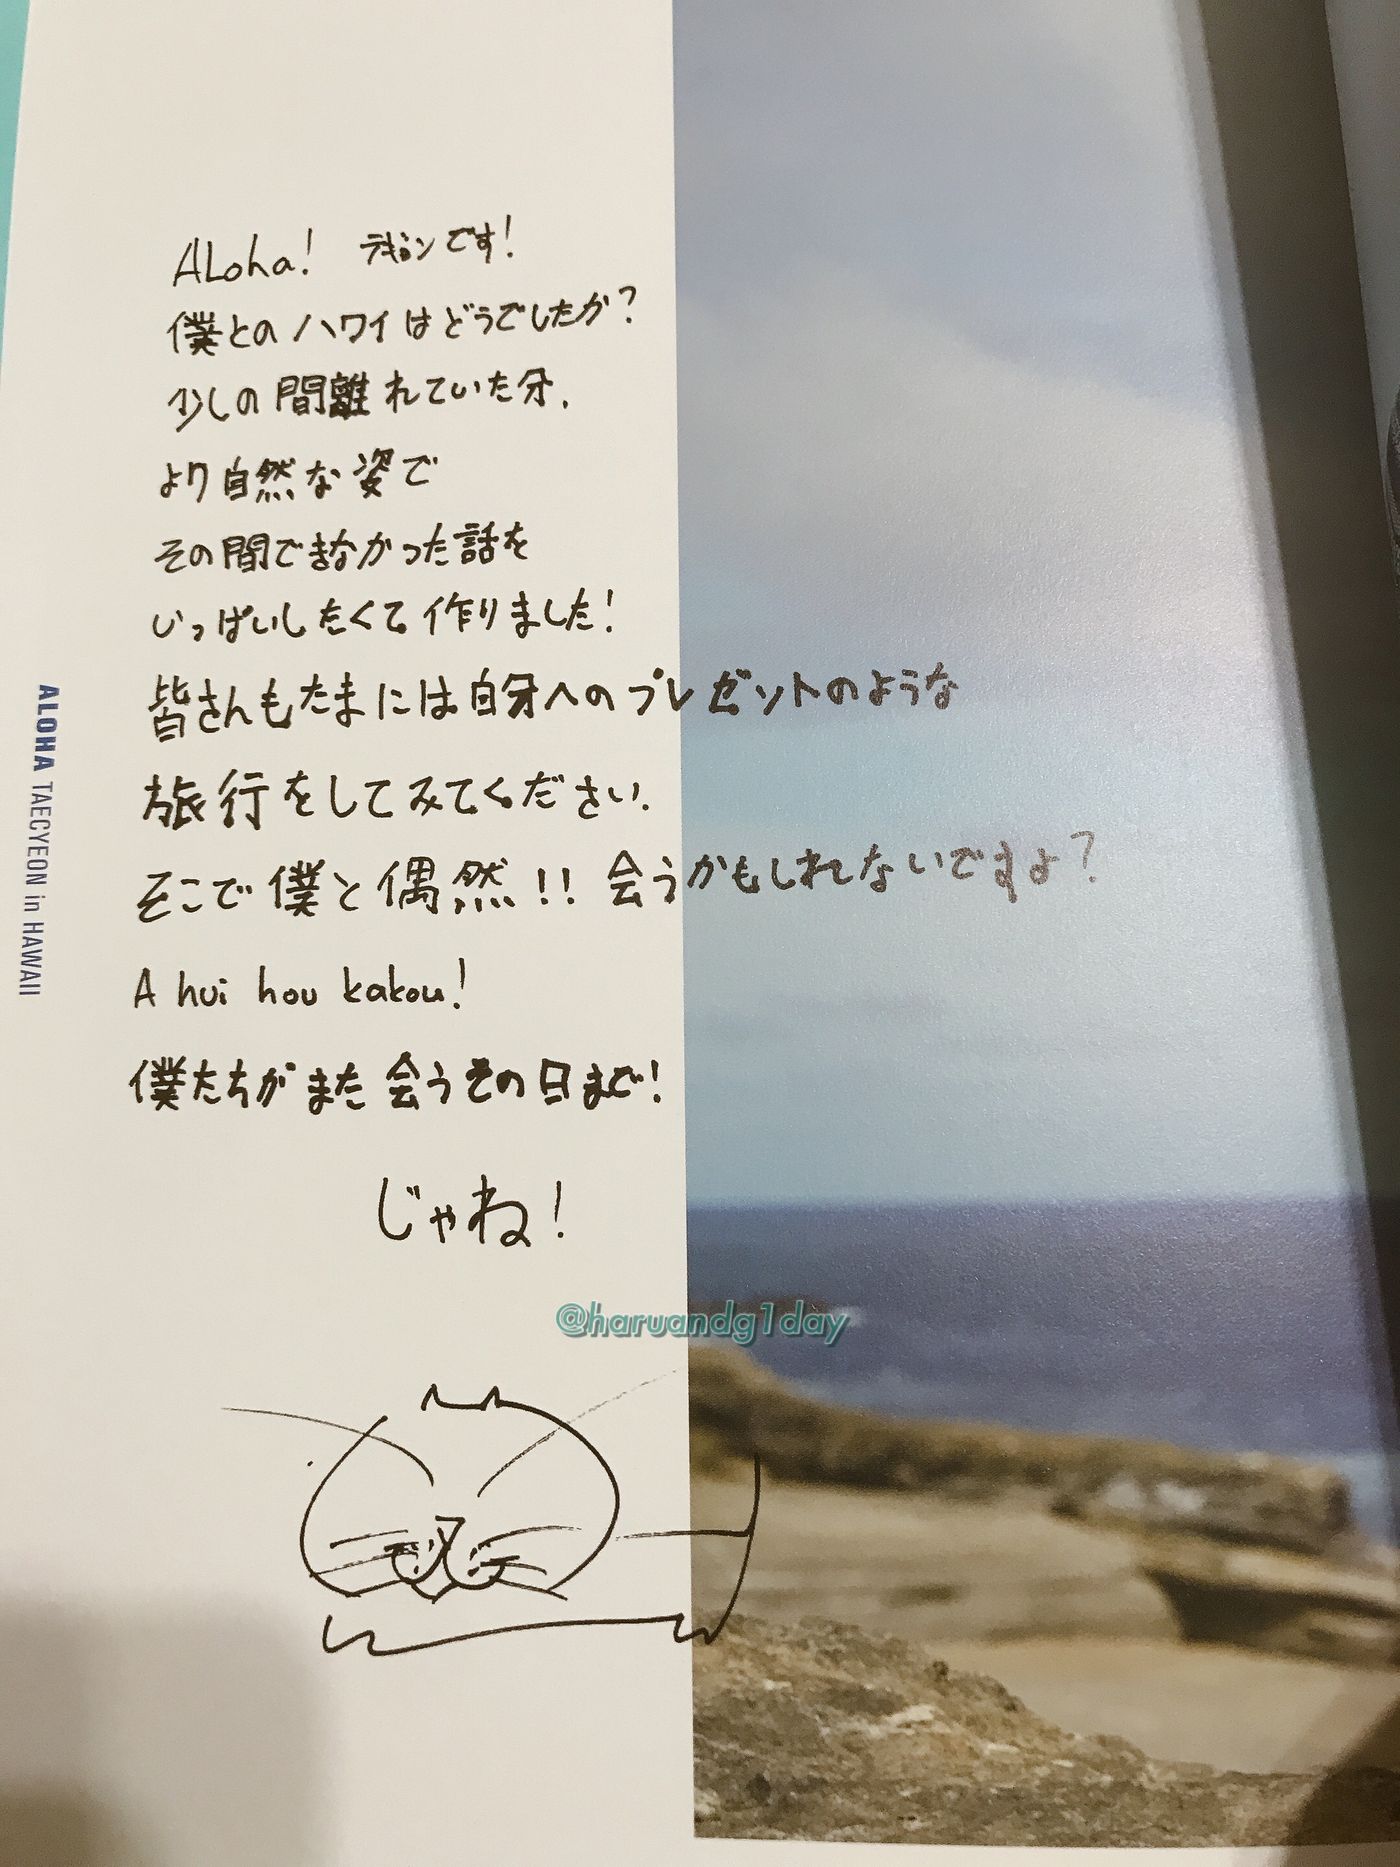 ALoha! テギョンです!
僕とのハワイはどうでしたか?
少しの間離れていた分、
より自然な姿で
その間できなかった話を
いっぱいしたくて作りました!
皆さんもたまには自分へのプレゼントのような
旅行をしてみてください.
そこで僕と偶然!! 会うかもしれないですよ?
A hui hou kakou!
僕たちがまた会うその日まで!
じゃね!
ALOHA TAECYEON in HAWAII
@haruandg1day